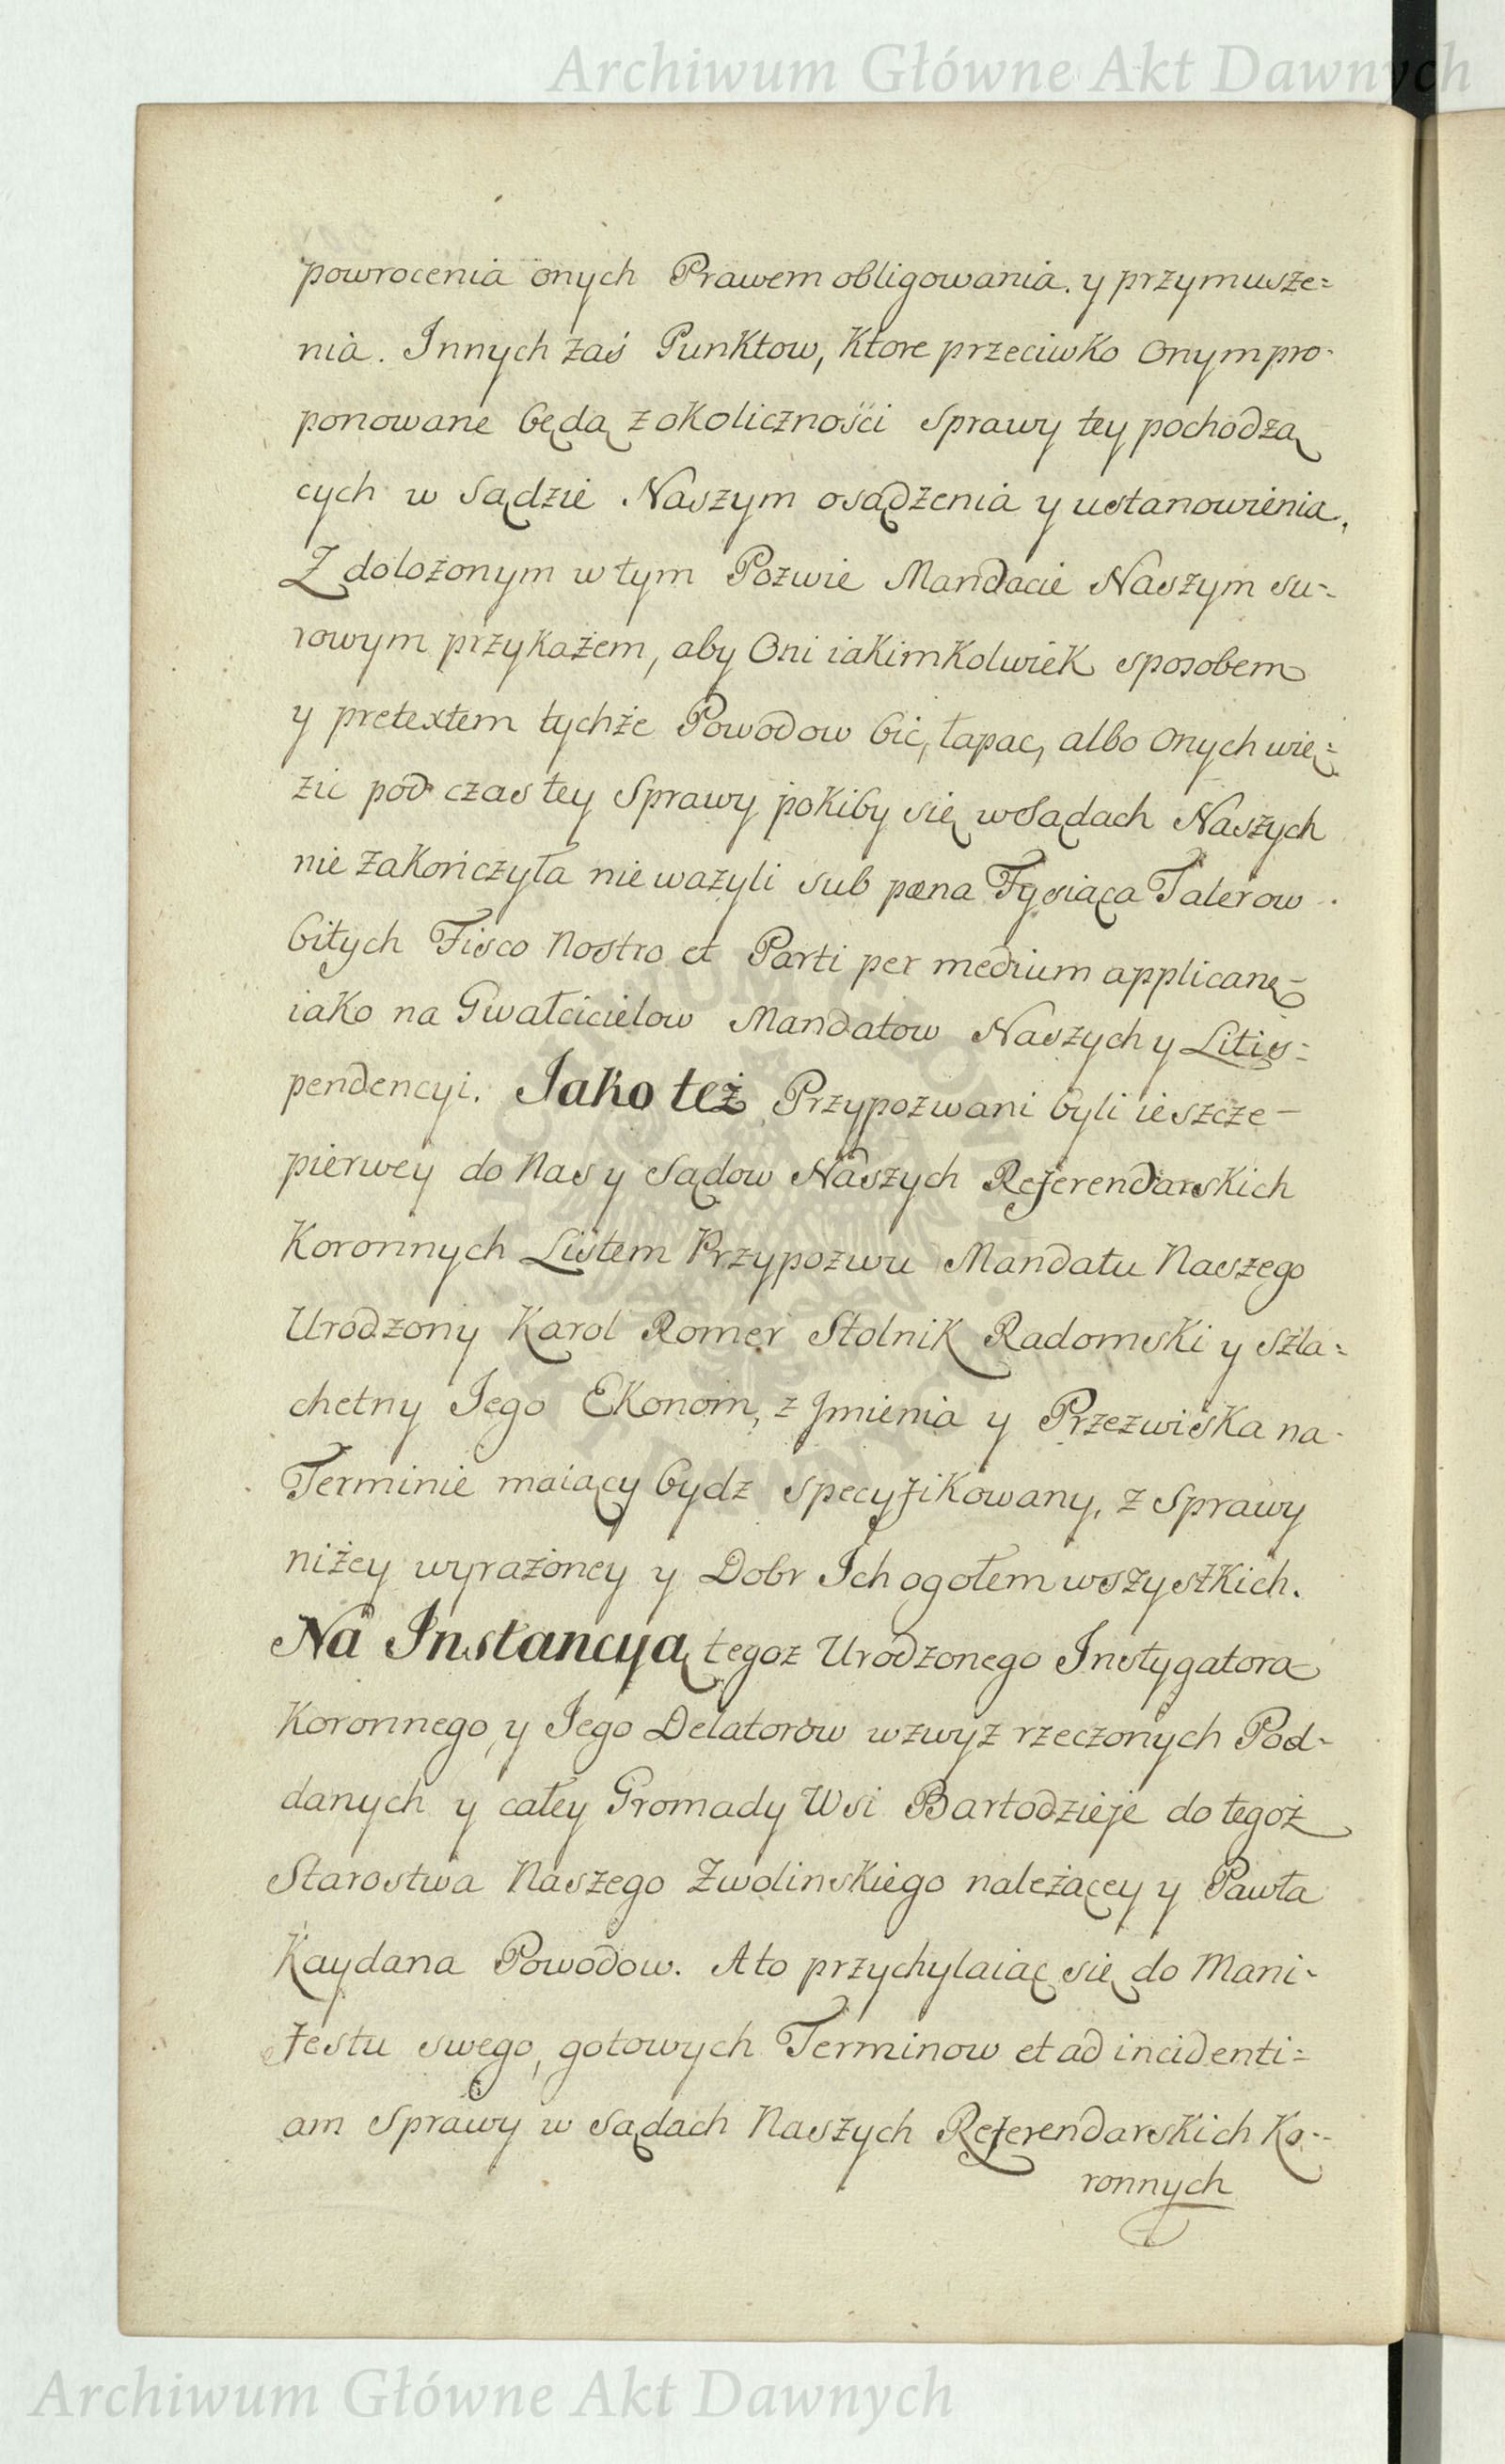 Archiwum Główne Akt Dawnych
powrocenia onych Prawem obligowania. y przymusze=
nia. Innych zaś Punktow, Ktore przeciwko Onym pro-
ponowane będą z okoliczności Sprawy tey pochodzą
cych w Sądzie Naszym osądzenia y ustanowienia,
Z dolożonym w tym Pozwie Mandacie Naszym su=
rowym przykażem, aby Oni iakimKolwiek sposobem
y pretextem tychże Powodow bić, łapac, albo Onych wię=
zić pod czas tey Sprawy pokiby się w Sądach Naszych
nie zakończyła nie ważyli sub pœna Tysiąca Talerow
bitych Fisco Nostro et Parti per medium applicanę
iako na Gwałcicielow Mandatow Naszych y Litis=
pendencyi. Jako też Przypozwani byli ieszcze
pierwey do Nas y Sądow Naszych Referendarskich
Koronnych Listem Przypozwu Mandatu Naszego
Urodzony Karol Romer Stolnik Radomski y Szla=
chetny Jego Ekonom, z Jmienia y Przezwiska na
Terminie maiący bydz specyfikowany, z Sprawy
niżey wyrażoney y Dobr Ich ogołem wszystkich.
Na Instancyą tegoz Urodzonego Instygatora
Koronnego, y Jego Delatorow wzwyz rzeczonych Pod-
danych y całey Gromady Wsi Bartodzieje do tegoż
Starostwa Naszego Zwolinskiego należącey y Pawła
Kaydana Powodow. A to przychylaiąc się do Mani-
festu swego, gotowych Terminow et ad incidenti=
am Sprawy w Sądach Naszych Referendarskich Ko=
ronnych
Archiwum Główne Akt Dawnych